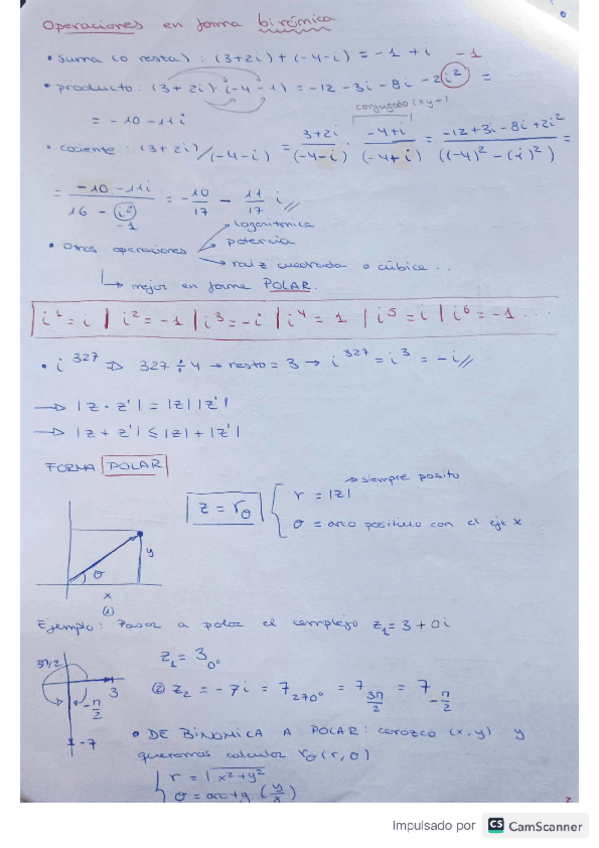 Operaciones en forma binómica
• suma (o resta) : (3+2i)+(-4-i) = -1 + i
-1
• producto : (3+2i)·(-4-i) = -12 - 3i - 8i - 2i² =
= -10 - 11i
conjugado (x y -)
• cociente : (3+2i)/(-4-i) = 3+2i/(-4-i) · -4+i/(-4+i) = -12+3i-8i+2i²/((-4)²-(i)²) =
= -10-11i/16-i² = -10/17 - 11/17 i //
-1
logaritmica
• Otras operaciones
potencia
raiz cuadrada o cúbica ..
↳ mejor en forma POLAR.
i¹ = i | i² = -1 | i³ = -i | i⁴ = 1 | i⁵ = i | i⁶ = -1 ...
• i³²⁷ ⇒ 327 ÷ 4 → resto = 3 → i³²⁷ = i³ = -i //
→ |z · z'| = |z| |z'|
→ |z + z'| ≤ |z| + |z'|
FORMA POLAR
→ siempre positivo
z = rθ
r = |z|
θ = arco positivo con el eje x
y
θ
x
①
Ejemplo: Pasar a polar el complejo z₁ = 3 + 0i
z₁ = 3₀°
3π/2
3
-π/2
-7
② z₂ = -7i = 7₂₇₀° = 7 3π/2 = 7 -π/2
• DE BINOMICA A POLAR : conozco (x,y) y
queremos calcular rθ (r, θ)
r = √x²+y²
θ = arc tg (y/x)
2
Impulsado por CS CamScanner